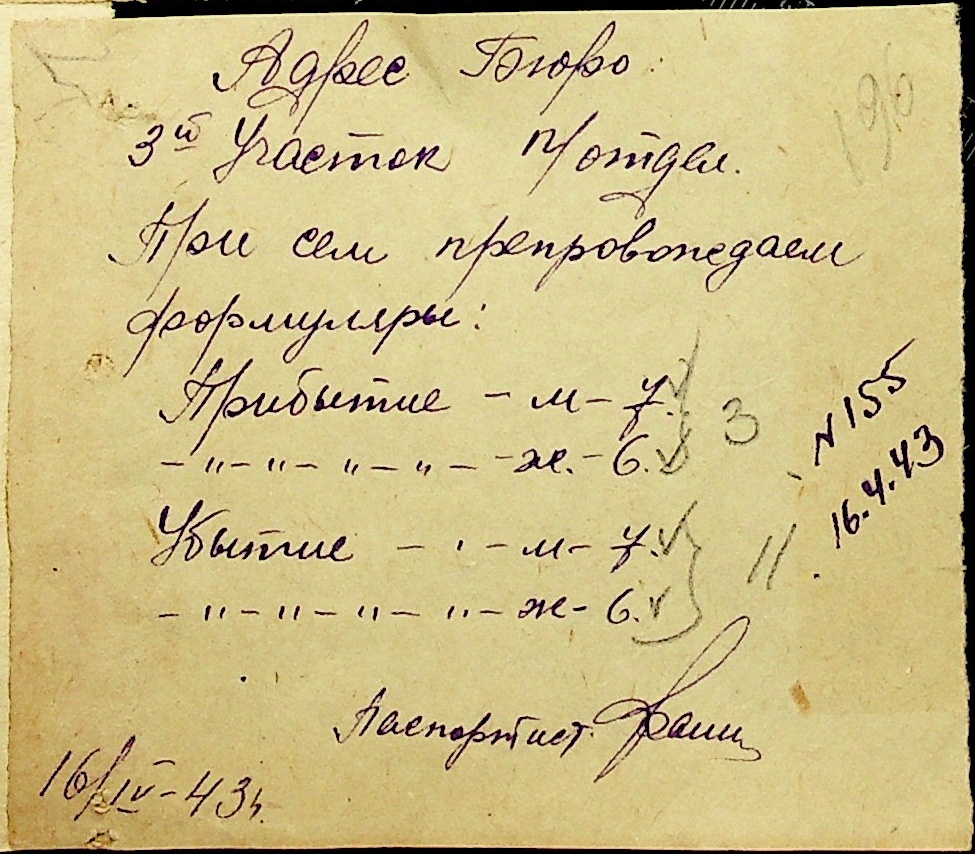 196
Адрес Бюро
3й Участок п/отдел.
При сем препровождаем
формуляры:
Прибытие - м - 7.
- " - " - " - " - - ж. - 6.
3
Убытие - ' - м - 7.
- " - " - " - " - ж - 6.
11
N 155
16.4.43
Паспортист
16/IV - 43г.